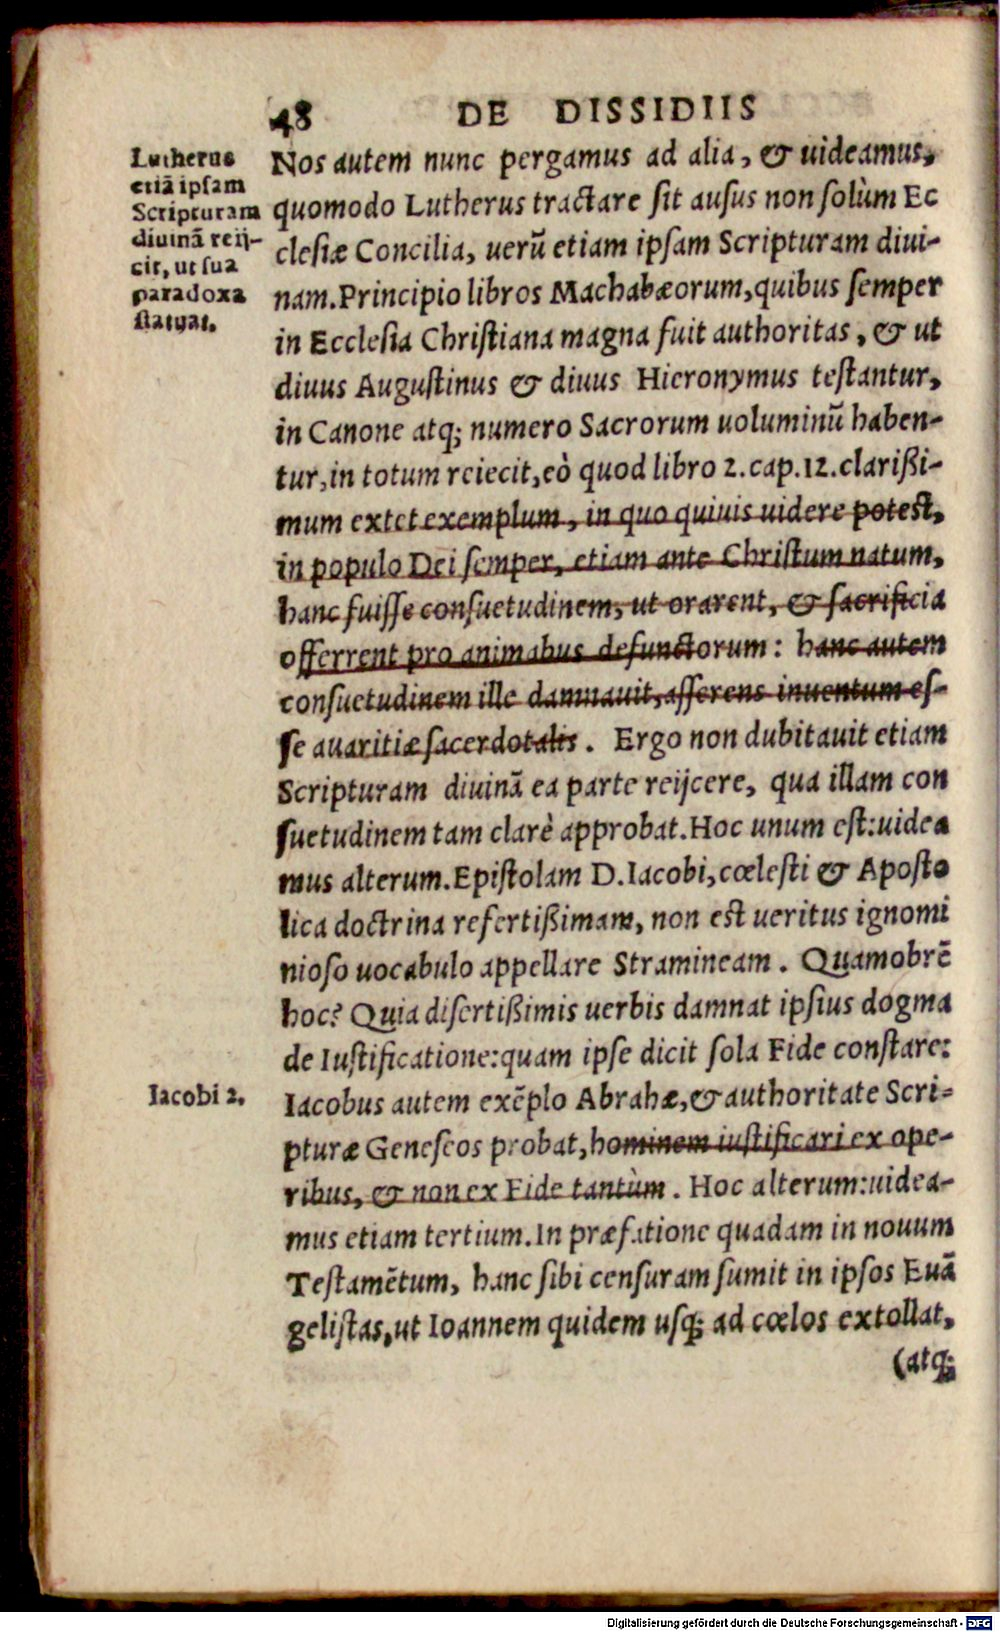 48 DE DISSIDIIS
Lutherus
etiã ipsam
Scripturam
diuinã reij-
cit, ut sua
paradoxa
statuat.
Nos autem nunc pergamus ad alia, & uideamus,
quomodo Lutherus tractare sit ausus non solùm Ec
clesiæ Concilia, uerũ etiam ipsam Scripturam diui-
nam. Principio libros Machabæorum, quibus semper
in Ecclesia Christiana magna fuit authoritas, & ut
diuus Augustinus & diuus Hieronymus testantur,
in Canone atq; numero Sacrorum uoluminũ haben-
tur, in totum reiecit, eò quod libro 2. cap. 12. clarißi-
mum extet exemplum, in quo quiuis uidere potest,
in populo Dei semper, etiam ante Christum natum,
hanc fuisse consuetudinem, ut orarent, & sacrificia
offerrent pro animabus defunctorum: hanc autem
consuetudinem ille damnauit, asserens inuentum es-
se auaritiæ sacerdotalis. Ergo non dubitauit etiam
Scripturam diuinã ea parte reijcere, qua illam con
suetudinem tam clarè approbat. Hoc unum est: uidea
mus alterum. Epistolam D. Iacobi, cœlesti & Aposto
lica doctrina refertißimam, non est ueritus ignomi
nioso uocabulo appellare Stramineam. Quamobrẽ
hoc? Quia disertißimis uerbis damnat ipsius dogma
de Iustificatione: quam ipse dicit sola Fide constare:
Iacobi 2.
Iacobus autem exẽplo Abrahæ, & authoritate Scri-
pturæ Geneseos probat, hominem iustificari ex ope-
ribus, & non ex Fide tantùm. Hoc alterum: uidea-
mus etiam tertium. In præfatione quadam in nouum
Testamẽtum, hanc sibi censuram sumit in ipsos Euã
gelistas, ut Ioannem quidem usq; ad cœlos extollat,
(atq;
Digitalisierung gefördert durch die Deutsche Forschungsgemeinschaft - DFG